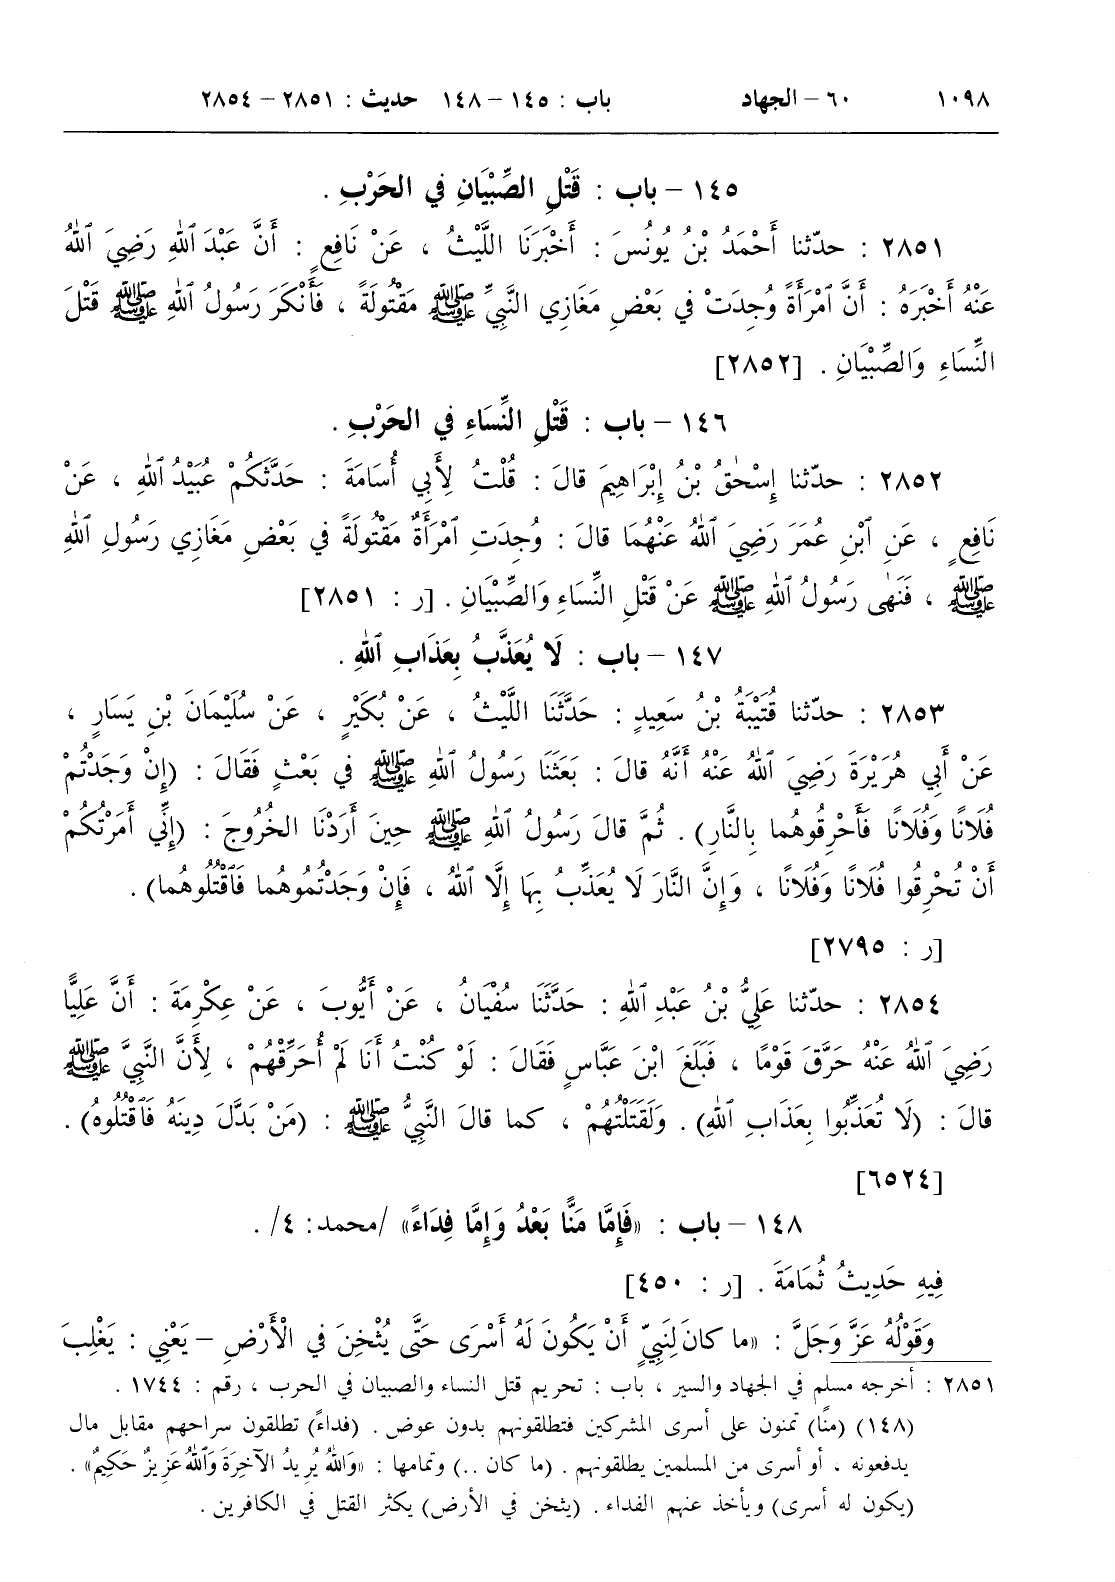 ١٠٩٨ ٦٠ – الجهاد باب : ١٤٥ – ١٤٨ حديث : ٢٨٥١ – ٢٨٥٤
١٤٥ – باب : قَتْلِ الصِّبْيَانِ في الحَرْبِ .
٢٨٥١ : حدّثنا أَحْمَدُ بْنُ يُونُسَ : أَخْبَرَنَا اللَّيْثُ ، عَنْ نَافِعٍ : أَنَّ عَبْدَ ٱللهِ رَضِيَ ٱللهُ
عَنْهُ أَخْبَرَهُ : أَنَّ ٱمْرَأَةً وُجِدَتْ في بَعْضِ مَغَازِي النَّبِيِّ ﷺ مَقْتُولَةً ، فَأَنْكَرَ رَسُولُ ٱللهِ ﷺ قَتْلَ
النِّسَاءِ وَالصِّبْيَانِ . [٢٨٥٢]
١٤٦ – باب : قَتْلِ النِّسَاءِ في الحَرْبِ .
٢٨٥٢ : حدّثنا إِسْحٰقُ بْنُ إِبْرَاهِيمَ قالَ : قُلْتُ لِأَبِي أُسَامَةَ : حَدَّثَكُمْ عُبَيْدُ ٱللهِ ، عَنْ
نَافِعٍ ، عَنِ ٱبْنِ عُمَرَ رَضِيَ ٱللهُ عَنْهُمَا قالَ : وُجِدَتِ ٱمْرَأَةٌ مَقْتُولَةً في بَعْضِ مَغَازِي رَسُولِ ٱللهِ
ﷺ ، فَنَهٰى رَسُولُ ٱللهِ ﷺ عَنْ قَتْلِ النِّسَاءِ وَالصِّبْيَانِ . [ر : ٢٨٥١]
١٤٧ – باب : لَا يُعَذَّبُ بِعَذَابِ ٱللهِ .
٢٨٥٣ : حدّثنا قُتَيْبَةُ بْنُ سَعِيدٍ : حَدَّثَنَا اللَّيْثُ ، عَنْ بُكَيْرٍ ، عَنْ سُلَيْمَانَ بْنِ يَسَارٍ ،
عَنْ أَبِي هُرَيْرَةَ رَضِيَ ٱللهُ عَنْهُ أَنَّهُ قالَ : بَعَثَنَا رَسُولُ ٱللهِ ﷺ في بَعْثٍ فَقَالَ : (إِنْ وَجَدْتُمْ
فُلَانًا وَفُلَانًا فَأَحْرِقُوهُما بِالنَّارِ) . ثُمَّ قالَ رَسُولُ ٱللهِ ﷺ حِينَ أَرَدْنَا الخُرُوجَ : (إِنِّي أَمَرْتُكُمْ
أَنْ تُحْرِقُوا فُلَانًا وَفُلَانًا ، وَإِنَّ النَّارَ لَا يُعَذِّبُ بِهَا إِلَّا ٱللهُ ، فَإِنْ وَجَدْتُمُوهُما فَٱقْتُلُوهُما) .
[ر : ٢٧٩٥]
٢٨٥٤ : حدّثنا عَلِيُّ بْنُ عَبْدِ ٱللهِ : حَدَّثَنَا سُفْيَانُ ، عَنْ أَيُّوبَ ، عَنْ عِكْرِمَةَ : أَنَّ عَلِيًّا
رَضِيَ ٱللهُ عَنْهُ حَرَّقَ قَوْمًا ، فَبَلَغَ ابْنَ عَبَّاسٍ فَقَالَ : لَوْ كُنْتُ أَنَا لَمْ أُحَرِّقْهُمْ ، لِأَنَّ النَّبِيَّ ﷺ
قالَ : (لَا تُعَذِّبُوا بِعَذَابِ ٱللهِ) . وَلَقَتَلْتُهُمْ ، كما قالَ النَّبِيُّ ﷺ : (مَنْ بَدَّلَ دِينَهُ فَٱقْتُلُوهُ) .
[٦٥٢٤]
١٤٨ – باب : «فَإِمَّا مَنًّا بَعْدُ وَإِمَّا فِدَاءً» /محمد: ٤/ .
فِيهِ حَدِيثُ ثُمَامَةَ . [ر : ٤٥٠]
وَقَوْلُهُ عَزَّ وَجَلَّ : «ما كانَ لِنَبِيٍّ أَنْ يَكُونَ لَهُ أَسْرَى حَتَّى يُثْخِنَ فِي الْأَرْضِ – يَعْنِي : يَغْلِبَ
٢٨٥١ : أخرجه مسلم في الجهاد والسير ، باب : تحريم قتل النساء والصبيان في الحرب ، رقم : ١٧٤٤ .
(١٤٨) (منًا) تمنون على أسرى المشركين فتطلقونهم بدون عوض . (فداءً) تطلقون سراحهم مقابل مال
يدفعونه ، أو أسرى من المسلمين يطلقونهم . (ما كان ..) وتمامها : «وَٱللهُ يُرِيدُ الآخِرَةَ وَٱللهُ عَزِيزٌ حَكِيمٌ» .
(يكون له أسرى) ويأخذ عنهم الفداء . (يثخن في الأرض) يكثر القتل في الكافرين .